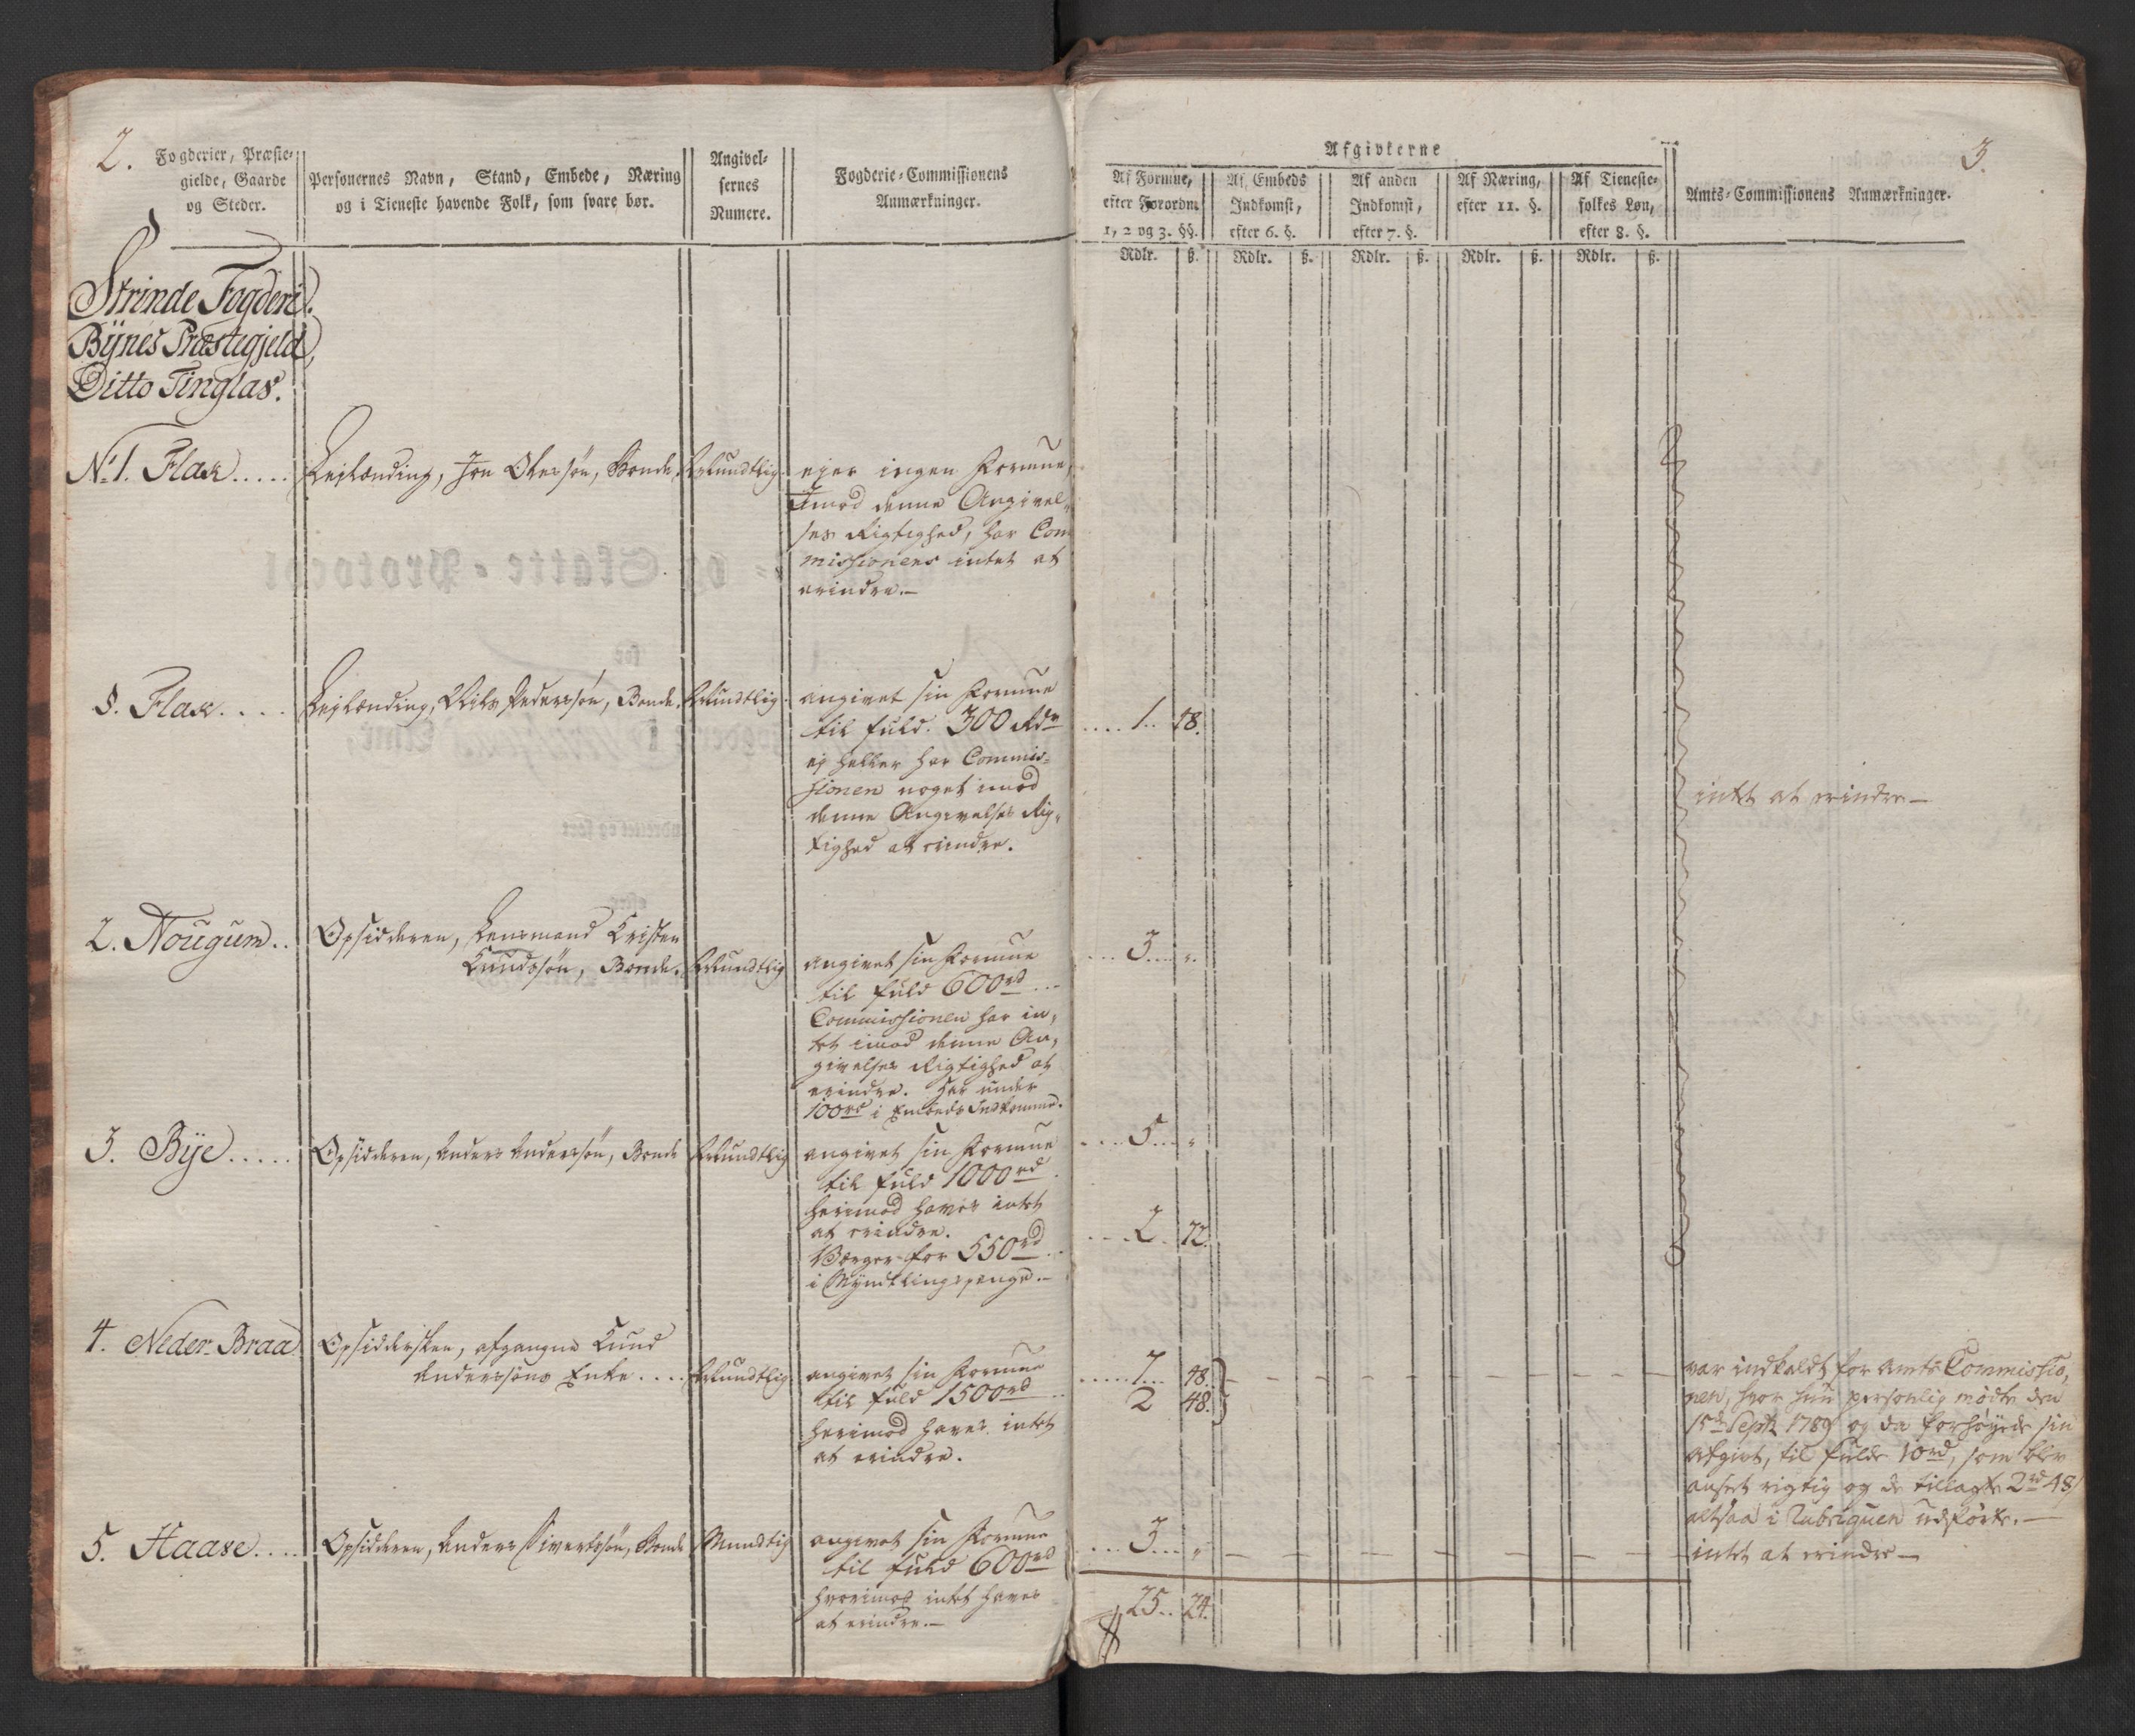 2.
Fogderier, Præste-
gielde, Gaarde
og Steder.
Personernes Navn, Stand, Embede, Næring
og i Tieneste havende Folk, som svare bør.
Angivel-
sernes
Numere.
Fogderie-Commissionens
Anmærkninger.
Strinde Fogderi.
Bÿnes Præstegjeld,
Ditto Tinglav.
No 1. Flak.....
Lejlænding, Jon Olessøn, Bonde.
Mundtlig.
ejer ingen Formue,
Imod denne Angivel-
ses Rigtighed, har Com
missionens intet at
erindre.—
§. Flak....
Lejlænding, Nils Pederssøn, Bonde.
Mundtlig.
angivet sin Formue
til fuld. 300 Rdr
ej heller har Commis-
sionen noget imod
denne Angivelses Rig-
tighed at erindre.
2. Nougum..
Opsidderen, Lensmand Cristen
Knudssøn, Bonde.
Mundtlig
angivet sin Formue
til fuld 600rd..-
Commissionen har in-
tet imod denne An-
givelses Rigtighed at
erindre. Har under
100rd i Embeds Indkomme.
3. Bÿe.....
Opsidderen, Anders Anderssøn, Bonde
Mundtlig
angivet sin Formue
til fuld 1000rd.
herimod haves intet
at erindre.
Værger for 550rd..
i Mÿndtlingspenge.—
4. Neder-Braa
Opsiddersken, afgangne Knud
Anderssøns Enke....
Mundtlig.
angivet sin Formue
til fuld 1500rd..
herimod haves intet
at erindre.
5. Haase....
Opsidderen, Anders Sivertssøn, Bonde
Mundtlig
angivet sin Formue
til fuld 600rd
hvorimod intet haves
at erindre.—
3.
Afgivterne
Af Formue,
efter Forordn.
1, 2 og 3. §§.
Af Embeds
Indkomst,
efter 6. §.
Af anden
Indkomst,
efter 7. §.
Af Næring,
efter 11. §.
Af Tieneste-
folkes Løn,
efter 8. §.
Amts-Commissionens Anmærkninger.
Rdlr. ß. Rdlr. ß. Rdlr. ß. Rdlr. ß. Rdlr. ß.
....1.. 48.
intet at erindre—
...3.... „.
....5.... „
....2.. 72.
.....7... 48.
2 48.
var indkaldt for Amts Commissio-
nen, hvor hun personlig mødte den
15de Septr 1789 og da forhøÿede sin
Afgivt, til fulde 10rd, som blev
anseet rigtig og de tillagte 2rd 48
altsaa i Rubriquen udførte.—
....3.... „
intet at erindre—
25.. 24.